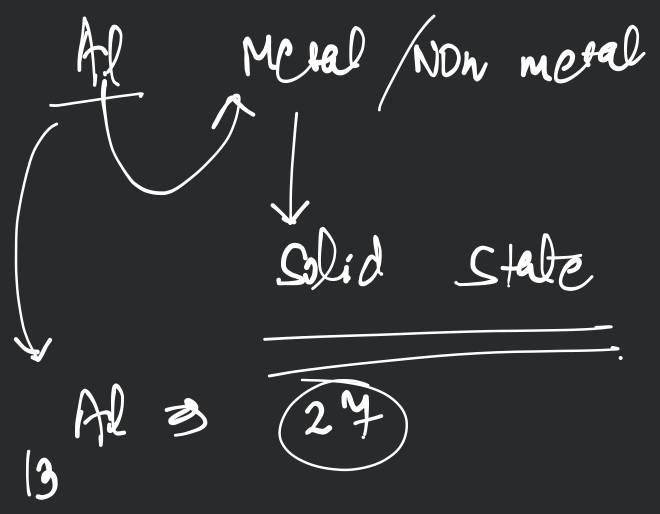 Al Metal / Non metal
Solid State
Al ⇒ 27
13